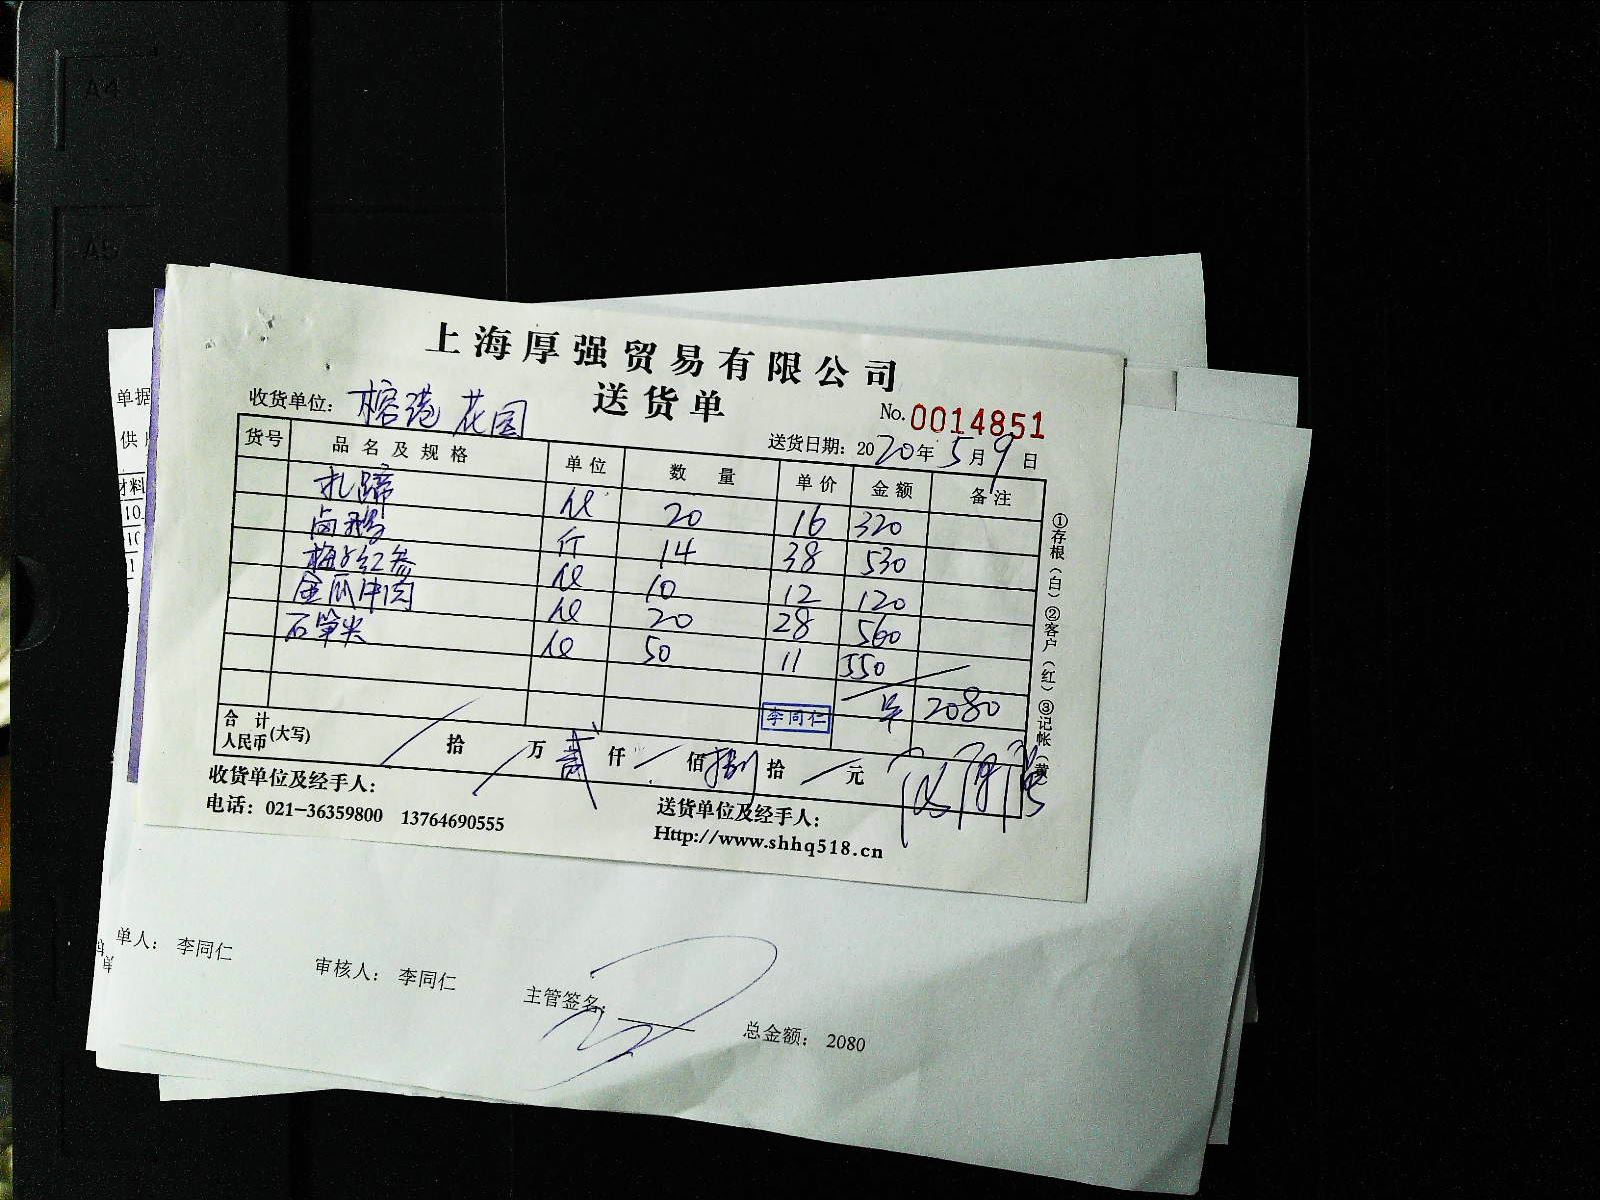 A4
A5
上海厚强贸易有限公司
送货单
No. 0014851
收货单位: 榕港花园
送货日期: 2020年5月9日
货号 品名及规格 单位 数量 单价 金额 备注
扎蹄 包 20 16 320
卤鹅 斤 14 38 530
包 10 12 120
金瓜牛肉 包 20 28 560
石笋尖 包 50 11 550
2080
李同仁
合计 人民币 (大写) 拾 万 贰 仟 佰 捌 拾 元
收货单位及经手人:
送货单位及经手人:
电话: 021-36359800 13764690555
Http://www.shhq518.cn
①存根(白) ②客户(红) ③记帐(黄)
单据
供
材料
10.
单人: 李同仁
审核人: 李同仁
主管签名:
总金额: 2080